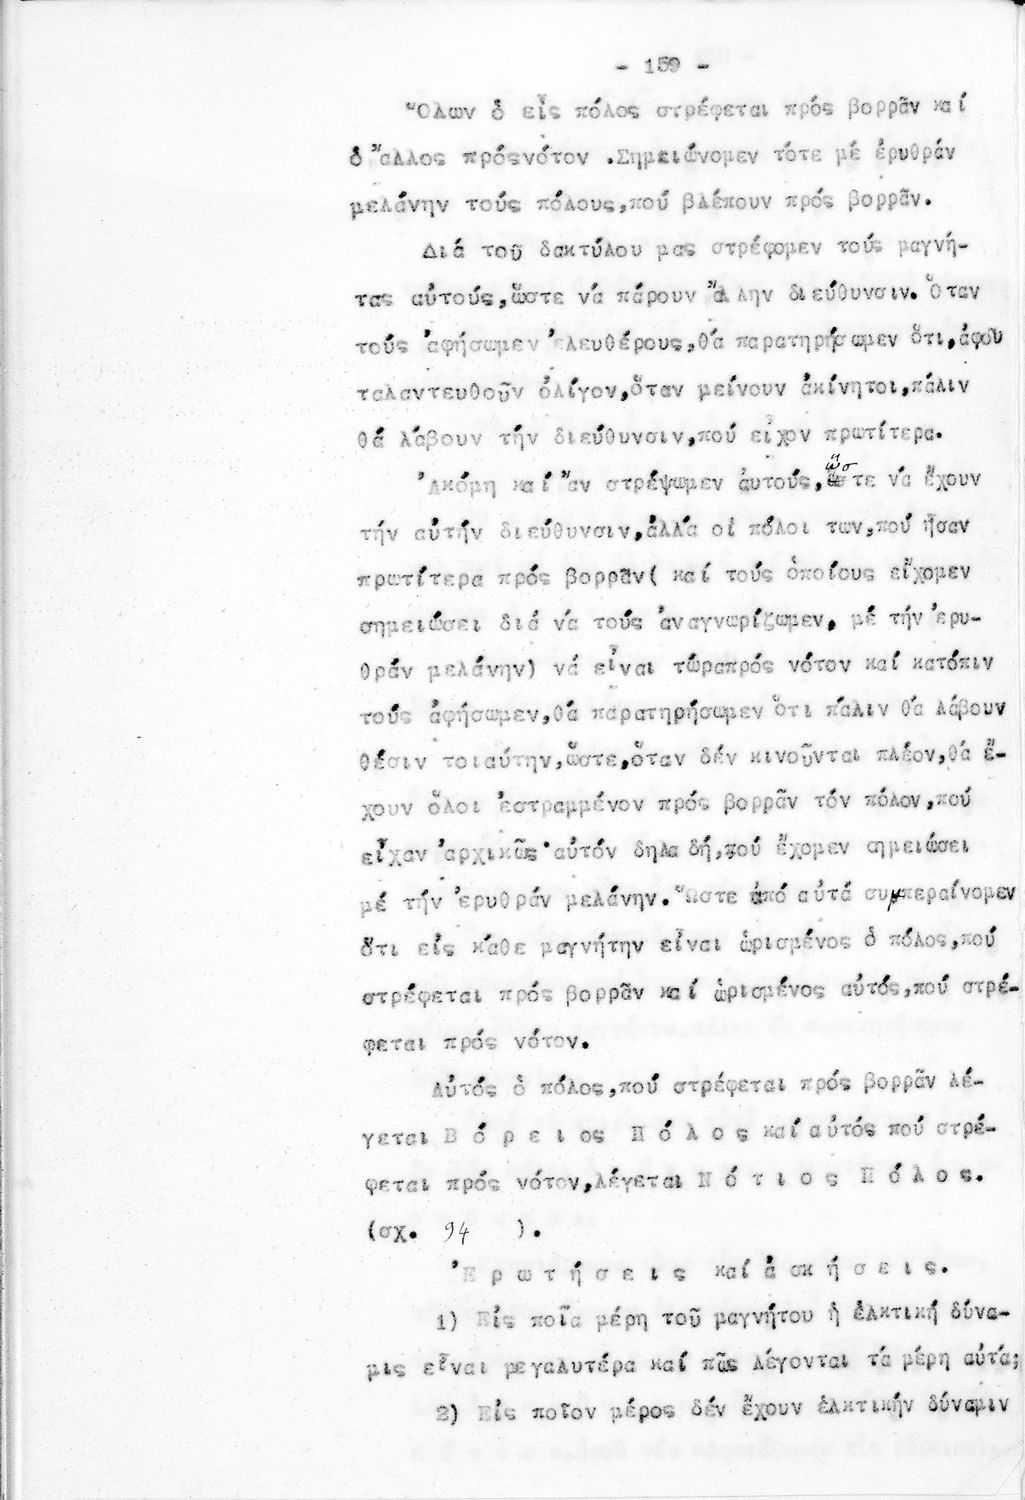 - 159 -
Ὅλων ὁ εἷς πόλος στρέφεται πρός βορρᾶν καί
ὁ ἄλλος πρόςνότον .Σημειώνομεν τότε μέ ἐρυθράν
μελάνην τούς πόλους,πού βλέπουν πρός βορρᾶν.
Διά τοῦ δακτύλου μας στρέφομεν τούς μαγνή-
τας αὐτούς,ὥστε νά πάρουν ἄλλην διεύθυνσιν. Ὅταν
τούς ἀφήσωμεν ἐλευθέρους,θά παρατηρήσωμεν ὅτι,ἀφοῦ
ταλαντευθοῦν ὀλίγον,ὅταν μείνουν ἀκίνητοι,πάλιν
θά λάβουν τήν διεύθυνσιν,πού εἶχον πρωτίτερα.
Ἀκόμη καί ἄν στρέψωμεν αὐτούς,ὥστε νά ἔχουν
τήν αὐτήν διεύθυνσιν,ἀλλά οἱ πόλοι των,πού ἦσαν
πρωτίτερα πρός βορρᾶν( καί τούς ὁποίους εἴχομεν
σημειώσει διά νά τούς ἀναγνωρίζωμεν, μέ τήν ἐρυ-
θράν μελάνην) νά εἶναι τώραπρός νότον καί κατόπιν
τούς ἀφήσωμεν,θά παρατηρήσωμεν ὅτι πάλιν θά λάβουν
θέσιν τοιαύτην,ὥστε,ὅταν δέν κινοῦνται πλέον,θά ἔ-
χουν ὅλοι ἐστραμμένον πρός βορρᾶν τόν πόλον,πού
εἶχαν ἀρχικῶς·αὐτόν δηλαδή,πού ἔχομεν σημειώσει
μέ τήν ἐρυθράν μελάνην. Ὥστε ἀπό αὐτά συμπεραίνομεν
ὅτι εἰς κάθε μαγνήτην εἶναι ὡρισμένος ὁ πόλος,πού
στρέφεται πρός βορρᾶν καί ὡρισμένος αὐτός,πού στρέ-
φεται πρός νότον.
Αὐτός ὁ πόλος,πού στρέφεται πρός βορρᾶν λέ-
γεται Β ό ρ ε ι ος Π ό λ ο ς καί αὐτός πού στρέ-
φεται πρός νότον,λέγεται Ν ό τ ι ο ς Π ό λ ο ς.
(σχ. 94 ).
Ἐ ρ ω τ ή σ ε ι ς καί ἀ σκ ή σ ε ι ς.
1) Εἰς ποῖα μέρη τοῦ μαγνήτου ἡ ἑλκτική δύνα-
μις εἶναι μεγαλυτέρα καί πῶς λέγονται τά μέρη αὐτά;
2) Εἰς ποῖον μέρος δέν ἔχουν ἑλκτικήν δύναμιν